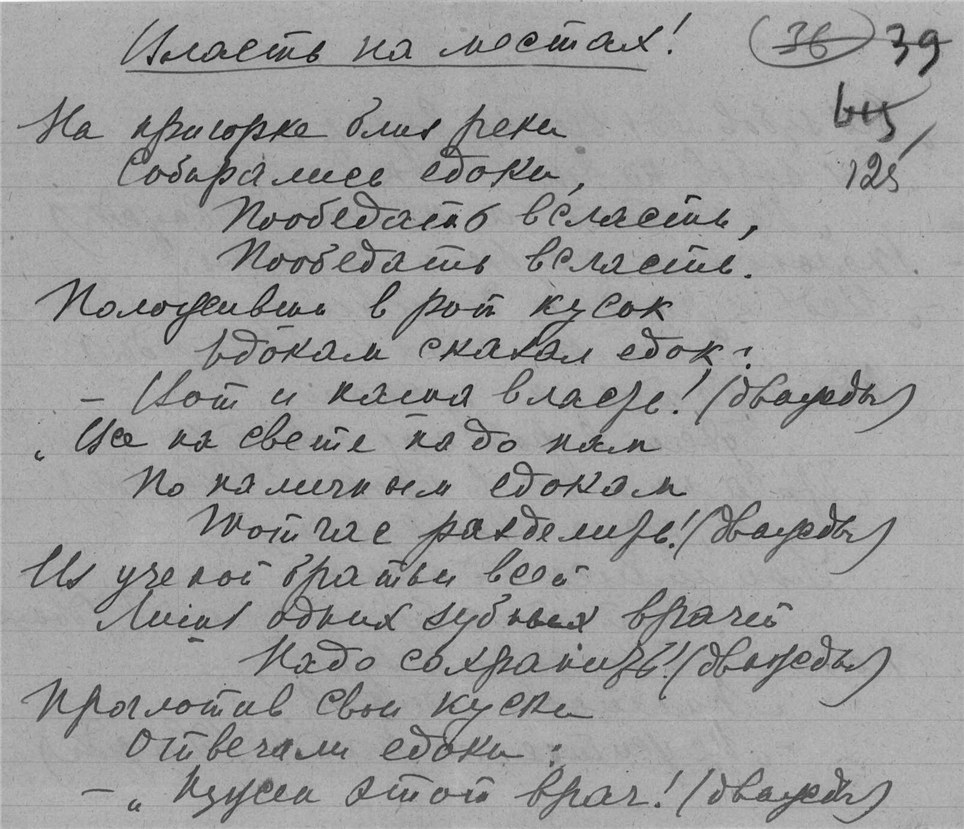 Власть на местах!
(36) 39
125
На пригорке близ реки
Собирались едоки,
Пообедать всласть,
Пообедать всласть.
Положивши в рот кусок
Едокам сказал едок:
– Вот и наша власть! (дважды)
„Все на свете надо нам
По наличным едокам
Тотчас разделить! (дважды)
Из ученой братьи всей
Лишь одних зубных врачей
Надо сохранить! (дважды)
Проглотив свои куски
Отвечали едоки:
– „ Нужен этот врач! (дважды)